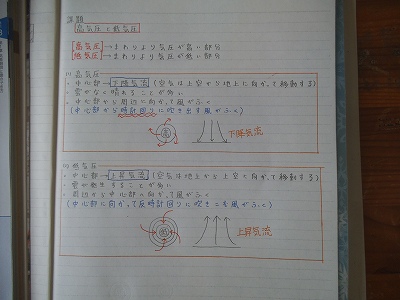 課題
高気圧と低気圧
高気圧→まわりより気圧が高い部分
低気圧→まわりより気圧が低い部分
(1) 高気圧
・中心部→下降気流(空気は上空から地上に向かって移動する)
・雲がなく晴れることが多い
・中心部から周辺に向かって風がふく
(中心部から時計回りに吹き出す風がふく)
高
下降気流
(2) 低気圧
・中心部→上昇気流(空気は地上から上空に向かって移動する)
・雲が発生することが多い
・周辺から中心部に向かって風がふく
(中心部に向かって反時計回りに吹きこむ風がふく)
低
上昇気流